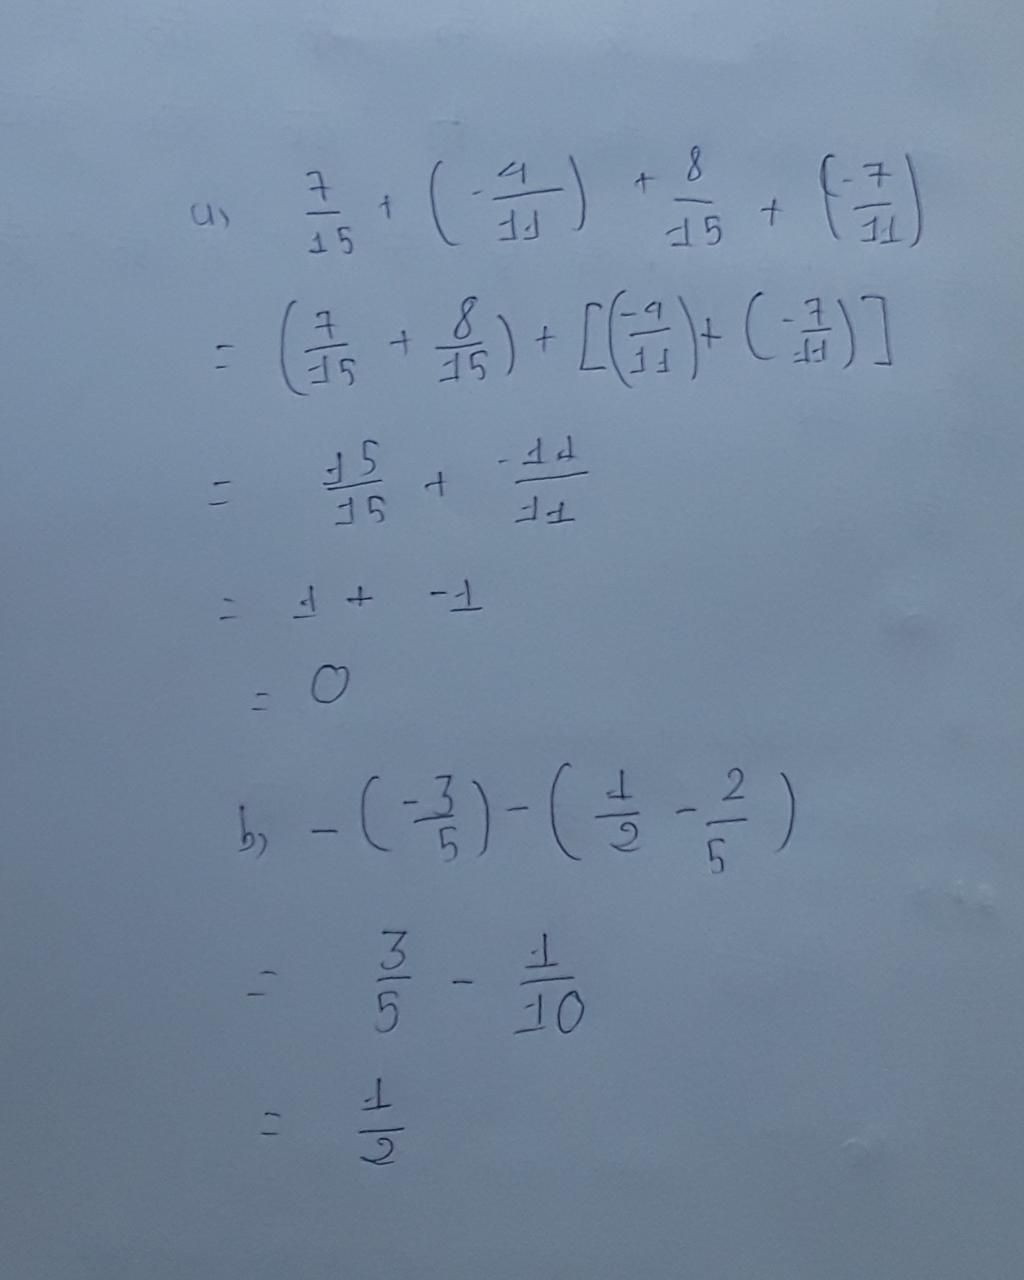 a, 7/15 + (-4/11) + 8/15 + (-7/11)
= (7/15 + 8/15) + [(-4/11) + (-7/11)]
= 15/15 + -11/11
= 1 + -1
= 0
b, - (-3/5) - (1/2 - 2/5)
= 3/5 - 1/10
= 1/2